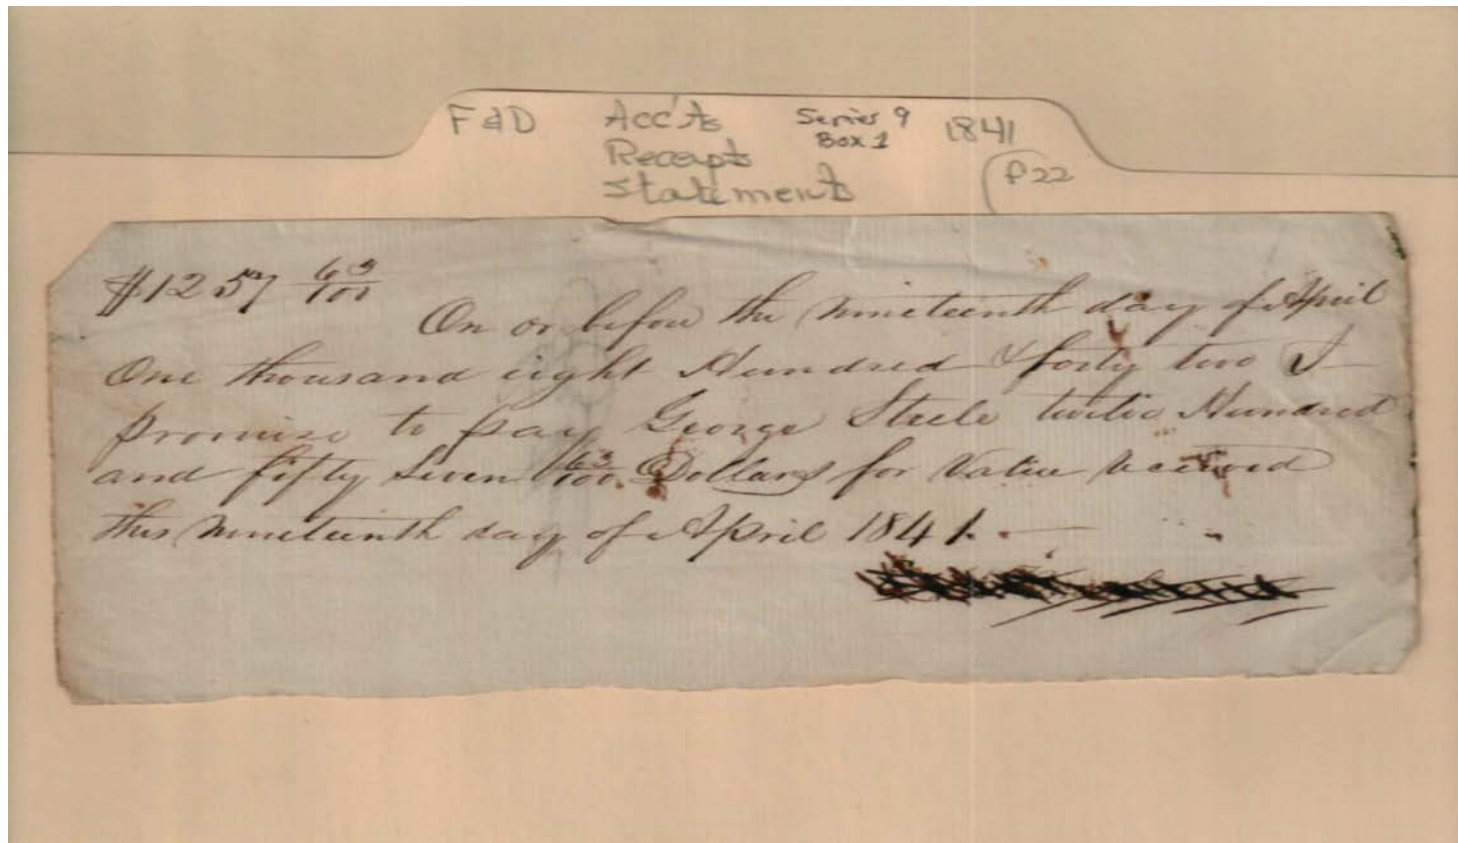 F & D Acc'ts Series 9 1841
Receipts Box 1
Statements P22
$1257 63/100
On or before the nineteenth day of April
One thousand eight Hundred & forty two I
promise to pay George Steele twelve Hundred
and fifty seven 63/100 Dollars for value received
this nineteenth day of April 1841.